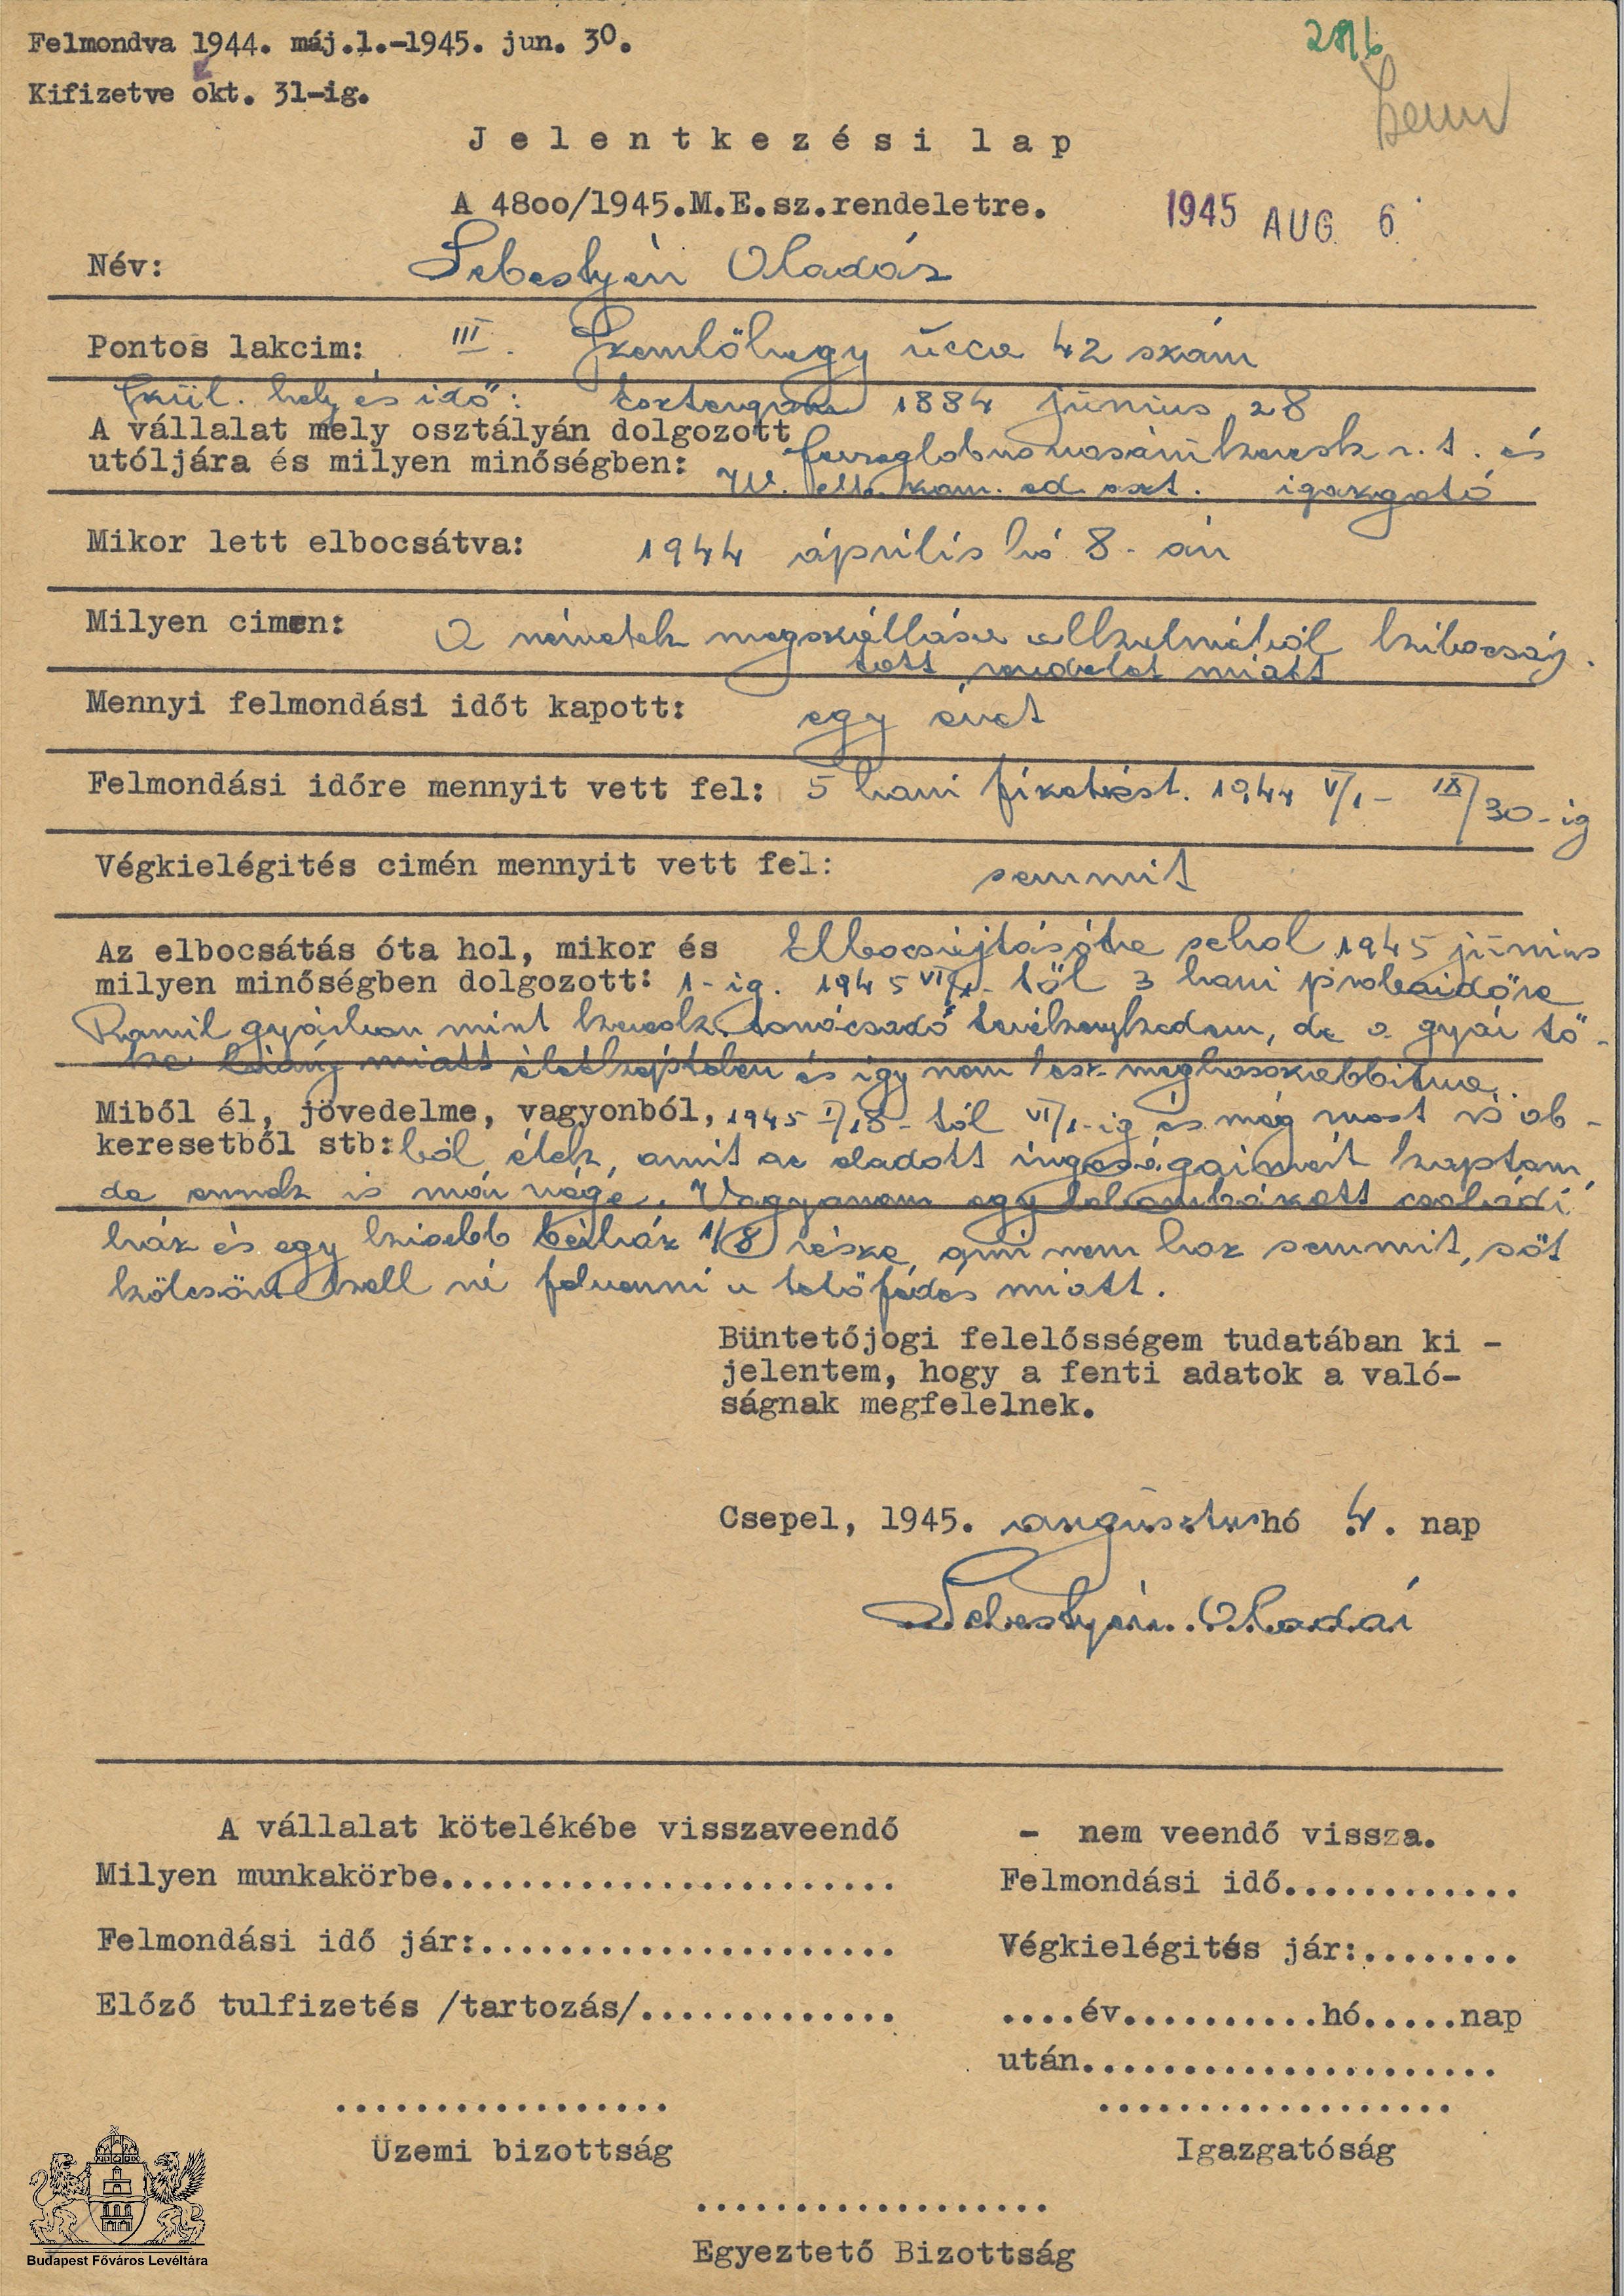 Felmondva 1944. máj.1.-1945. jun. 30.
Kifizetve okt. 31-ig.
Jelentkezési lap
A 48oo/1945.M.E.sz.rendeletre.
1945 AUG 6
Név: Sebestyén Aladár
Pontos lakcim: III. Szemlőhegy ucca 42 szám
Szül. hely és idő: 1884 június 28
A vállalat mely osztályán dolgozott
utóljára és milyen minőségben: r.t. és
W. oszt. igazgató
Mikor lett elbocsátva: 1944 április hó 8-án
Milyen cimen: A németek megszállása alkalmából kibocsáj-
tott rendelet miatt
Mennyi felmondási időt kapott: egy évet
Felmondási időre mennyit vett fel: 5 havi fizetést. 1944 V/1- IX/30-ig
Végkielégités cimén mennyit vett fel: semmit
Az elbocsátás óta hol, mikor és Elbocsájtásótá sehol 1945 június
milyen minőségben dolgozott: 1-ig. 1945 VI/1-től 3 havi probaidőre
Ramil gyárban mint keresk. tanácsadó tevékenykedem, de a gyár tő-
ke hiány miatt életképtelen és igy nem lesz meghosszabbitva.
Miből él, jövedelme, vagyonból, 1945 I/18-tól VI/1-ig és még most is ab-
keresetből stb: ból élek, amit az eladott ingóságaimért kaptam,
de ennek is már vége. Vagyonom egy lebombázott családi
ház és egy kisebb bérház 1/8 része, ami nem hoz semmit, sőt
kölcsönt kell rá felvenni a tetőfedés miatt.
Büntetőjogi felelősségem tudatában ki -
jelentem, hogy a fenti adatok a való-
ságnak megfelelnek.
Csepel, 1945. augusztus hó 4. nap
Sebestyén Aladár
A vállalat kötelékébe visszaveendő - nem veendő vissza.
Milyen munkakörbe....................... Felmondási idő............
Felmondási idő jár:..................... Végkielégités jár:........
Előző tulfizetés /tartozás/............. ....év..........hó.....nap
után.....................
................. ..................
Üzemi bizottság Igazgatóság
..................
Egyeztető Bizottság
Budapest Főváros Levéltára